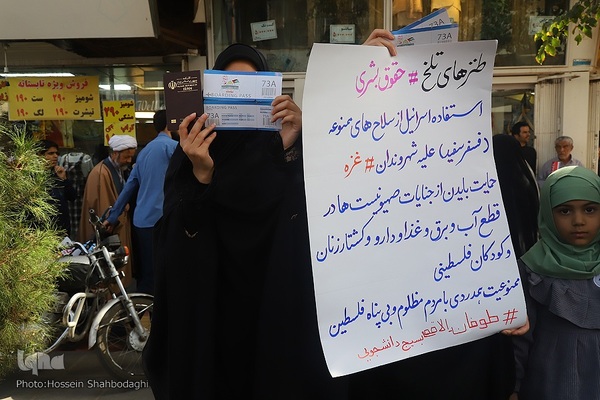 طنزهای تلخ # حقوق بشری
استفاده اسرائیل از سلاح های ممنوعه
(فسفر سفید) علیه شهروندان # غزه
حمایت بایدن از جنایات صهیونیست ها در
قطع آب و برق و غذا و دارو و کشتار زنان
و کودکان فلسطینی
ممنوعیت همدردی با مردم مظلوم و بی پناه فلسطین
# طوفان_الاقصی
بسیج دانشجویی
73A
BOARDING PASS
73A
فروش ویژه تابستانه
شومیز ۲۹۰
ست ۱۹۰
تیشرت ۱۹۰
لگ ۱۹۰
شومیز
۱۹۰
iqna
Photo:Hossein Shahbodaghi